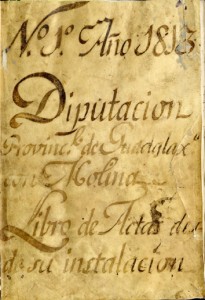 N.º 1.º Año 1813
Diputacion
Provincˡ de Guadalax.ª
con Molina
Libro de Actas des
de su instalacion